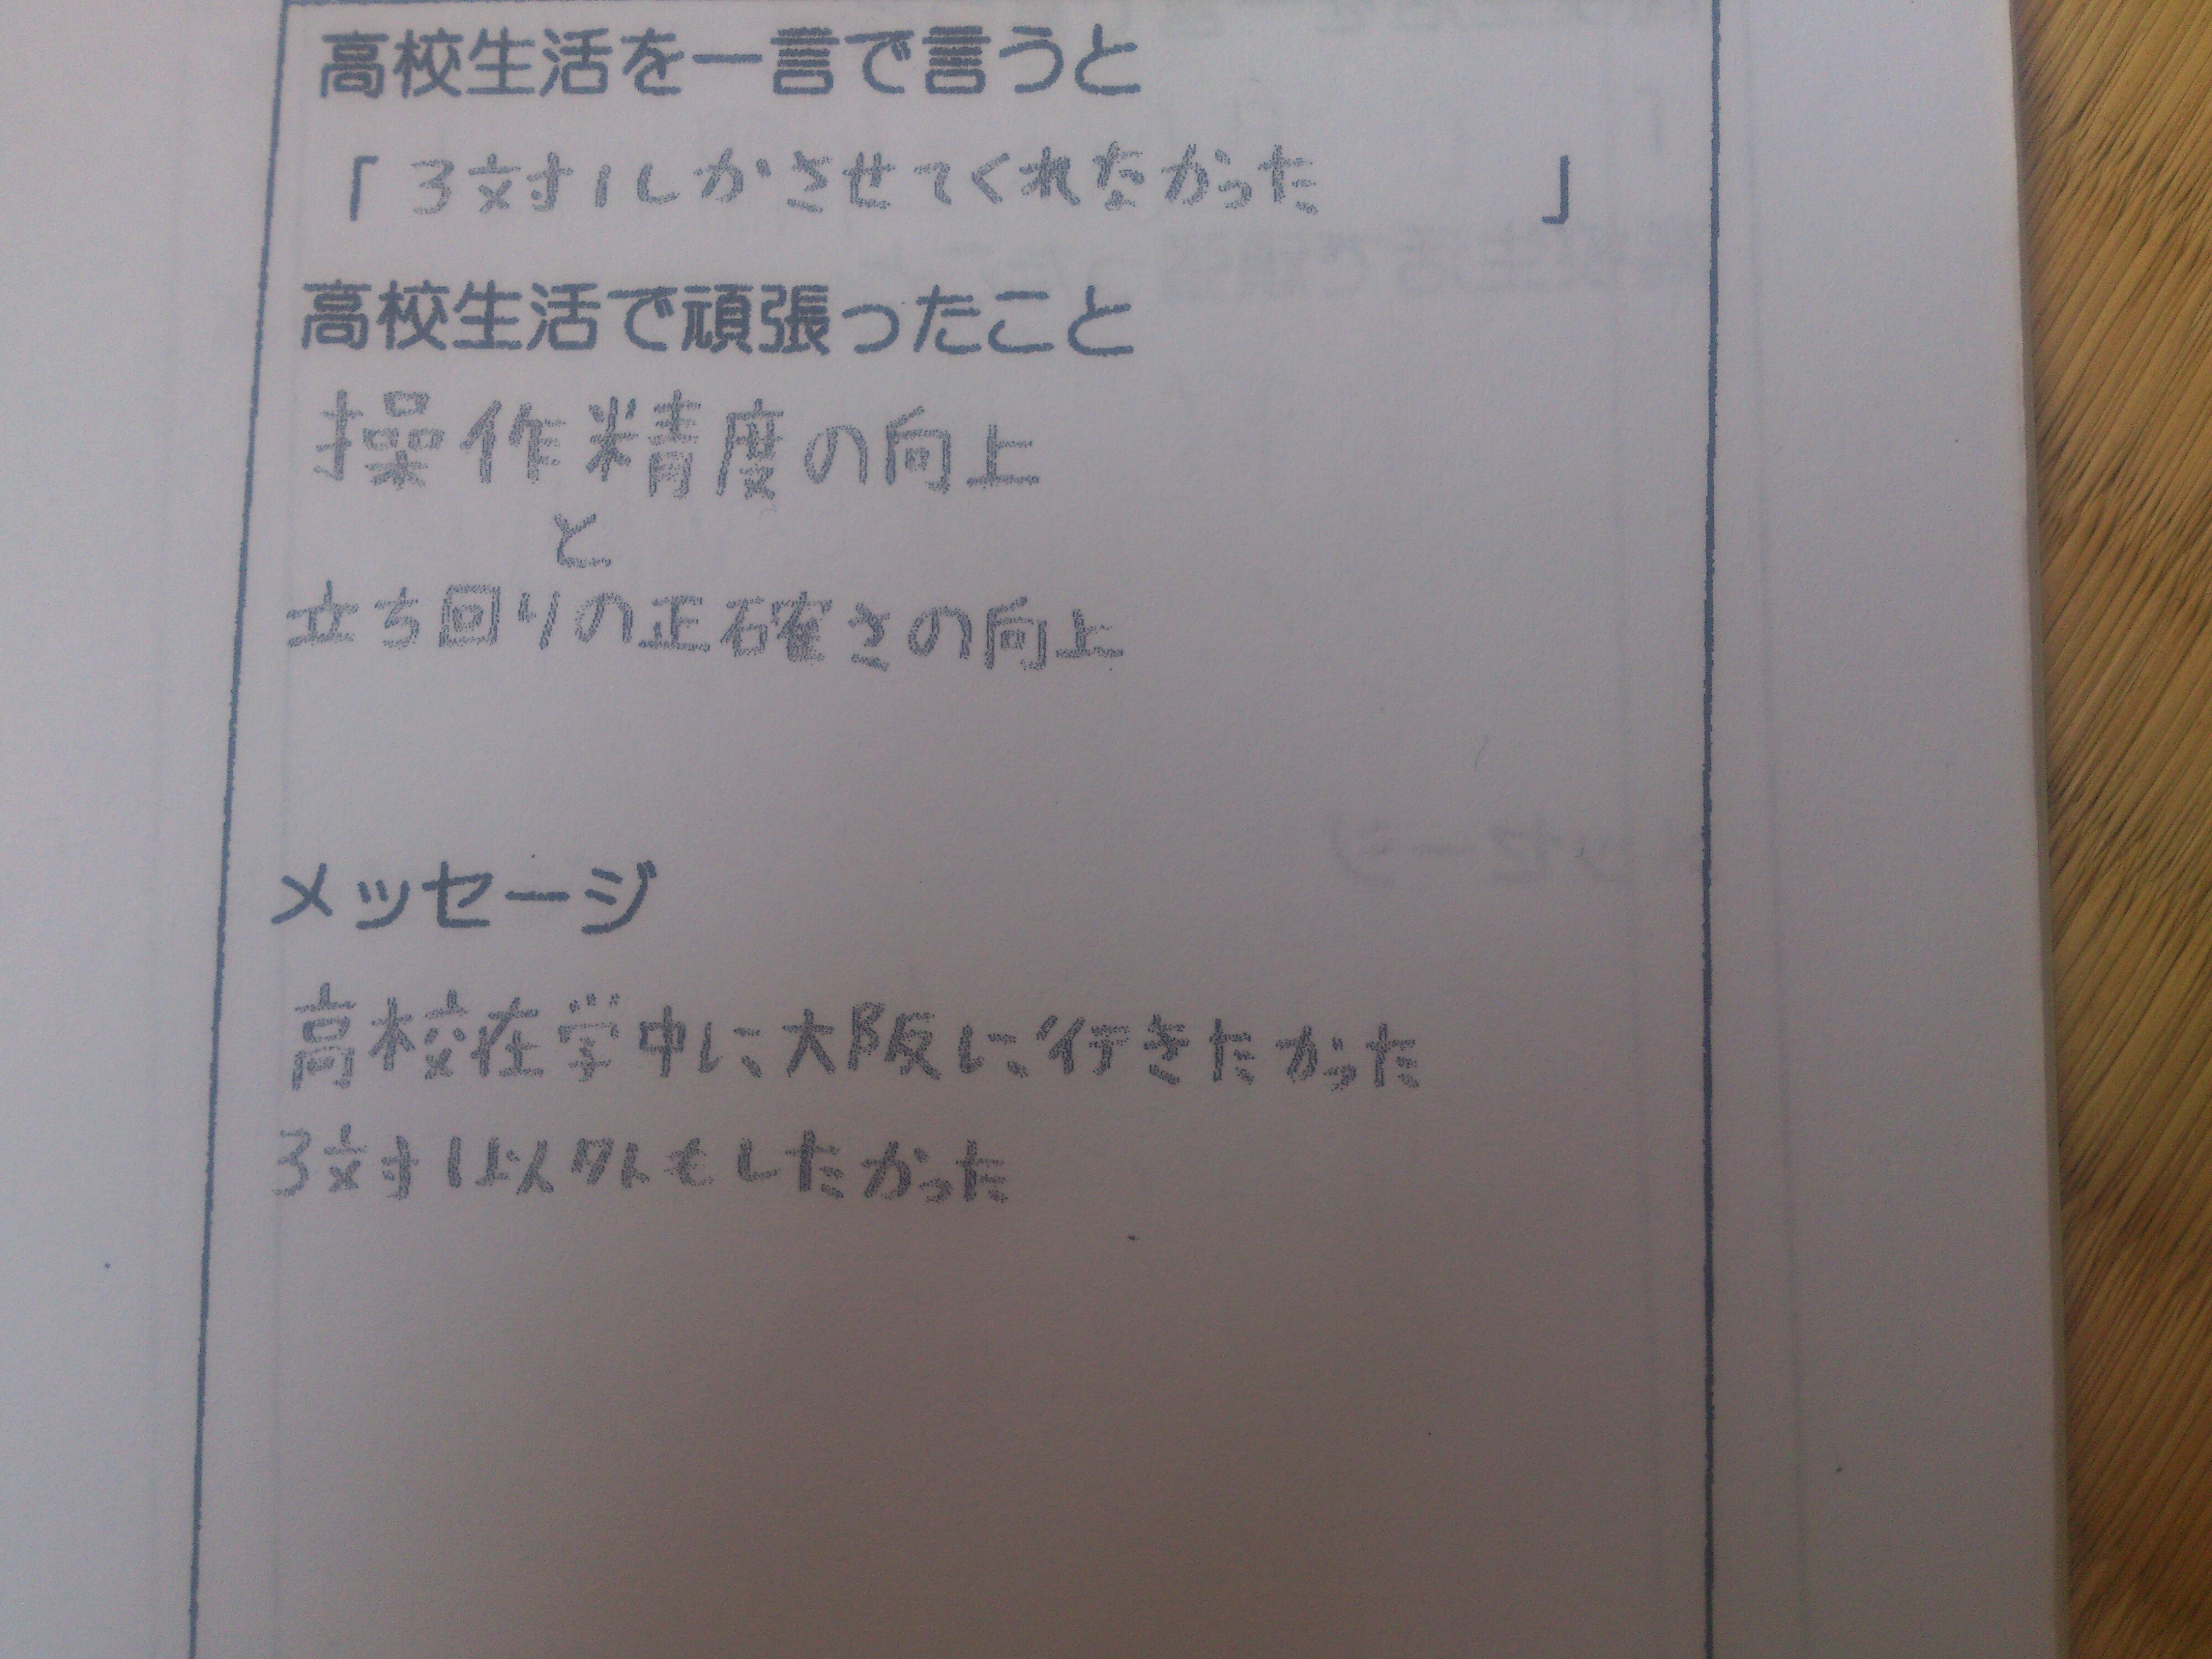 高校生活を一言で言うと
「3対1しかさせてくれなかった」
高校生活で頑張ったこと
操作精度の向上
と
立ち回りの正確さの向上
メッセージ
高校在学中に大阪に行きたかった
3対1以外もしたかった